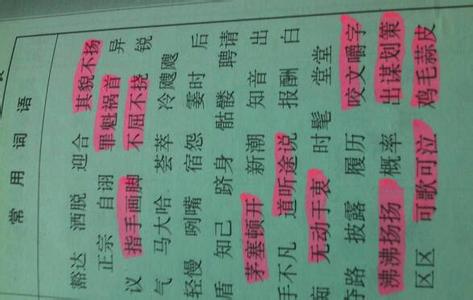 常用词语
豁达 洒脱 迎合 其貌不扬
正宗 自诩 罪魁祸首 异
议 指手画脚 不屈不挠 锐
气 马大哈 荟萃 冷飕飕
轻慢 咧嘴 宿怨 霎时 后
盾 知己 跻身 骷髅 聘请
茅塞顿开 新潮 知音 出
手不凡 道听途说 报酬 白
痴 无动于衷 时髦 堂堂
夺路 披露 履历 咬文嚼字
沸沸扬扬 概率 出谋划策
区区 可歌可泣 鸡毛蒜皮